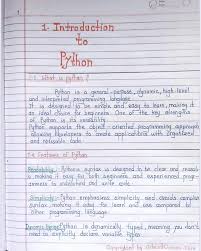 1. Introduction
to
Python
1.1. What is python ?
Python is a general-purpose, dynamic, high level
and interpreted programming language.
It is designed to be simple and easy to learn, making it
an ideal choice for beginners. One of the key strengths
of Python is its versatility.
Python supports the object-oriented programming approach
allowing developers to create applications with organized
and reusable code.
Features of Python
Readability : Python's syntax is designed to be clear and
making it easy for both beginners and experienced
to understand and write code.
Simplicity : Python emphasizes simplicity and avoids complex
syntax, making it easy to learn and use compared to
other programming language.
Dynamic Typing : Python is dynamically typed, meaning you don't
need to explicitly declare variable types.
Copyrighted by